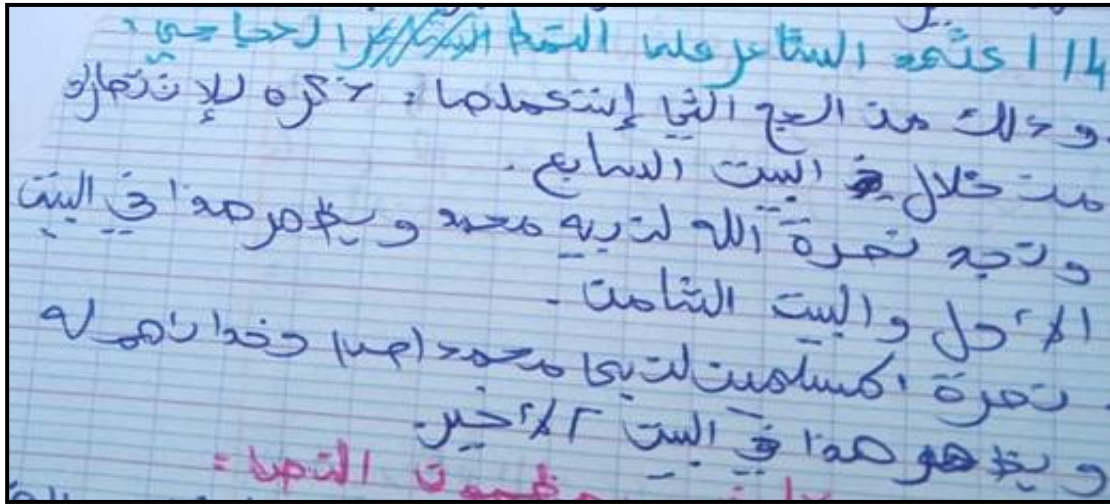 4/ اعتمد الشاعر على النمط الحجاجي:
وذلك من الحجج التي إستعملها: ذكره للإنتصارات
من خلال البيت السابع.
ونجد نصرة الله لنبيه محمد ويظهر هذا في البيت
الأول والبيت الثامن.
نصرة المسلمين لنبي محمد (ص) له
ويظهر هذا في البيت الأخير.
النص: